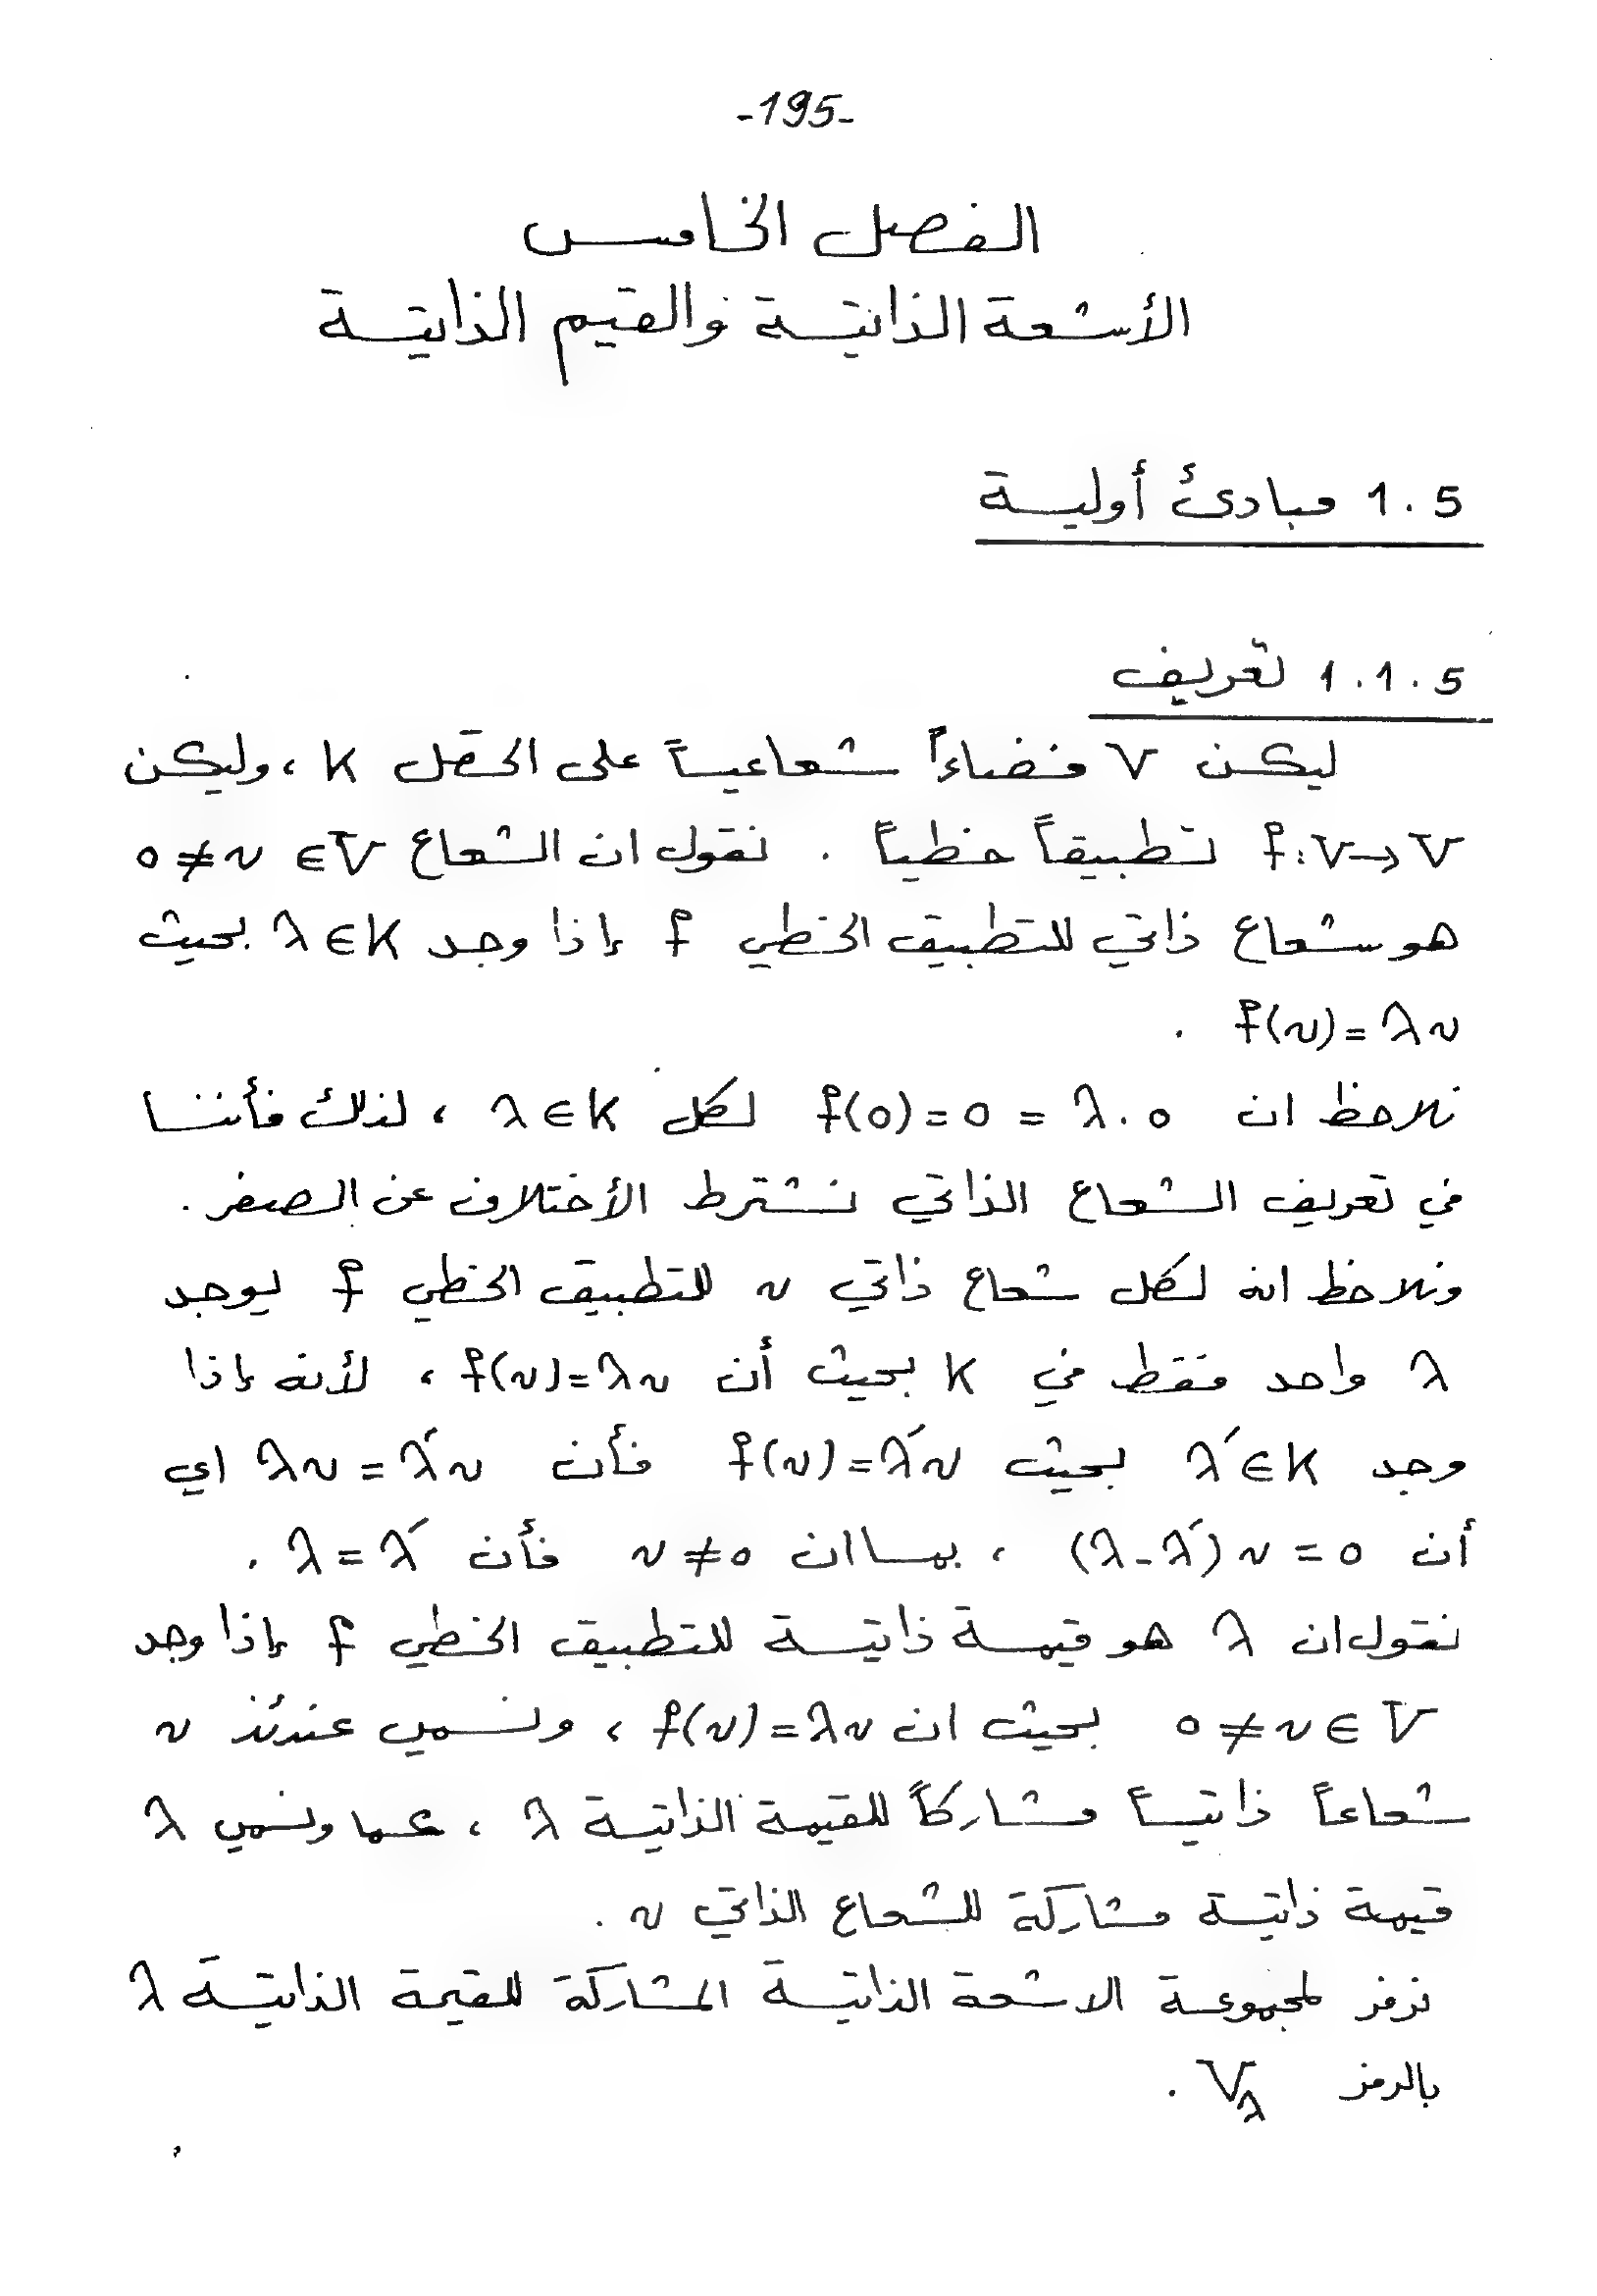 -195-
الفصل الخامس
الأشعة الذاتية والقيم الذاتية
1.5 مبادئ أولية
1.1.5 تعريف
ليكن V فضاءاً شعاعياً على الحقل K ، وليكن
f:V→V تطبيقاً خطياً . نقول ان الشعاع 0≠v ∈V
هو شعاع ذاتي للتطبيق الخطي f إذا وجد λ∈K بحيث
f(v)=λv .
نلاحظ ان f(0)=0=λ.0 لكل λ∈K ، لذلك فأننا
في تعريف الشعاع الذاتي نشترط الأختلاف عن الصفر .
ونلاحظ انه لكل شعاع ذاتي v للتطبيق الخطي f يوجد
λ واحد فقط في K بحيث أن f(v)=λv ، لأنه إذا
وجد λ′∈K بحيث f(v)=λ′v فأن λv=λ′v اي
أن (λ-λ′)v=0 ، بما ان v≠0 فأن λ=λ′ .
نقول ان λ هو قيمة ذاتية للتطبيق الخطي f إذا وجد
0≠v∈V بحيث ان f(v)=λv ، ونسمي عندئذ v
شعاعاً ذاتياً مشاركاً للقيمة الذاتية λ ، كما ونسمي λ
قيمة ذاتية مشاركة للشعاع الذاتي v .
نرمز لمجموعة الاشعة الذاتية المشاركة للقيمة الذاتية λ
بالرمز V_λ .